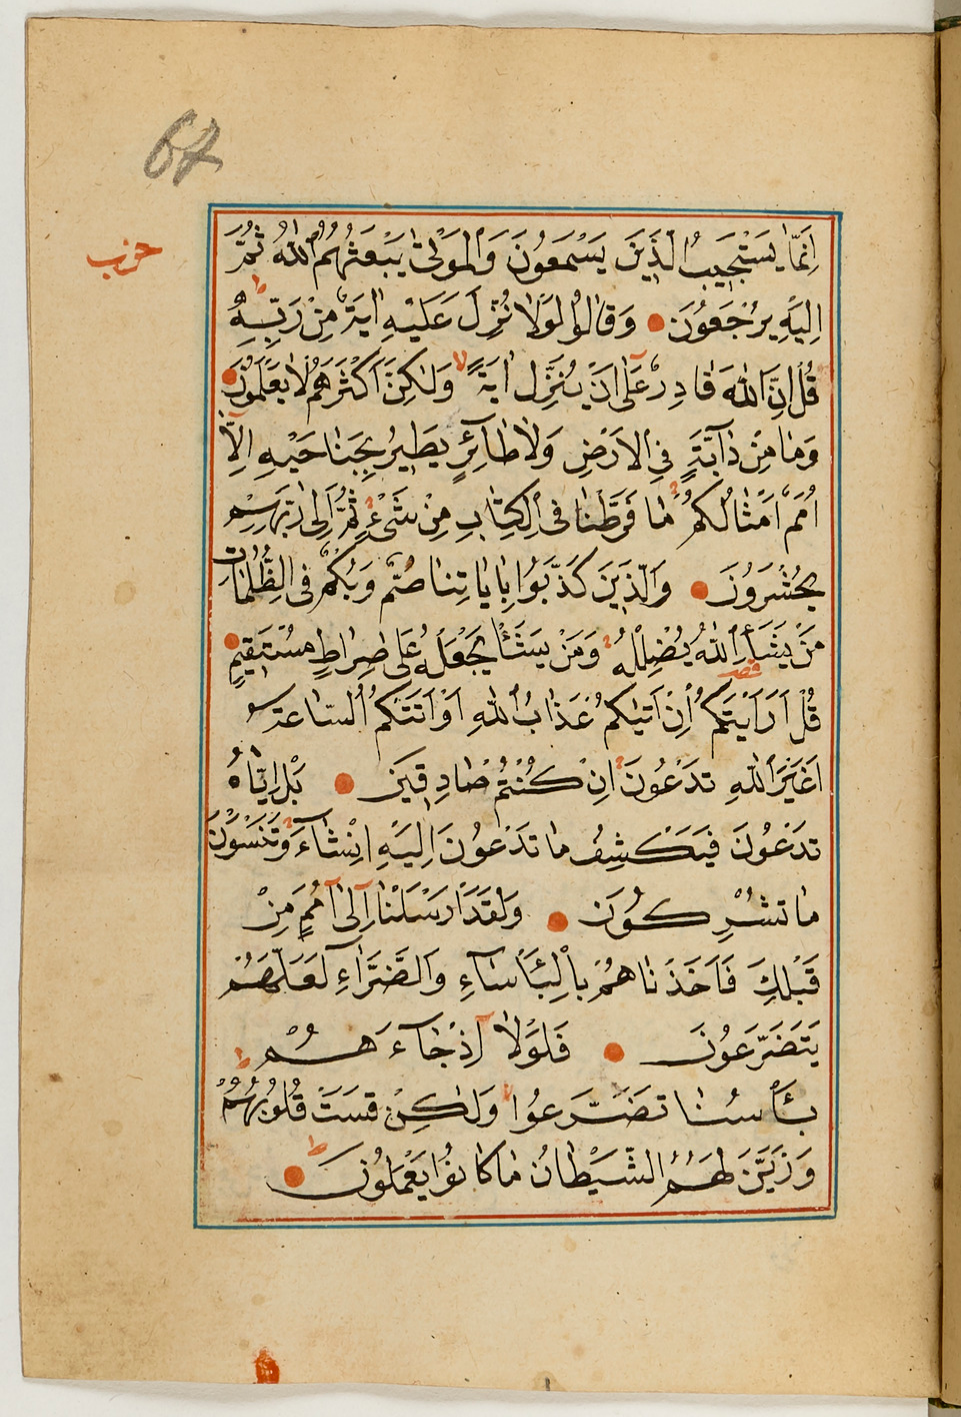 67
حزب
اِنَّمَا يَسْتَجٖيبُ الَّذٖينَ يَسْمَعُونَ وَالْمَوْتٰى يَبْعَثُهُمُ اللّٰهُ ثُمَّ
اِلَيْهِ يُرْجَعُونَ وَقَالُوا لَوْلَا نُزِّلَ عَلَيْهِ اٰيَةٌ مِنْ رَبِّهٖ
قُلْ اِنَّ اللّٰهَ قَادِرٌ عَلٰٓى اَنْ يُنَزِّلَ اٰيَةً وَلٰكِنَّ اَكْثَرَهُمْ لَا يَعْلَمُونَ
وَمَا مِنْ دَٓابَّةٍ فِي الْاَرْضِ وَلَا طَٓائِرٍ يَطٖيرُ بِجَنَاحَيْهِ اِلَّٓا
اُمَمٌ اَمْثَالُكُمْ مَا فَرَّطْنَا فِي الْكِتَابِ مِنْ شَيْءٍ ثُمَّ اِلٰى رَبِّهِمْ
يُحْشَرُونَ وَالَّذٖينَ كَذَّبُوا بِاٰيَاتِنَا صُمٌّ وَبُكْمٌ فِي الظُّلُمَاتِ
مَنْ يَشَأِ اللّٰهُ يُضْلِلْهُ وَمَنْ يَشَأْ يَجْعَلْهُ عَلٰى صِرَاطٍ مُسْتَقٖيمٍ
قُلْ اَرَاَيْتَكُمْ اِنْ اَتٰيكُمْ عَذَابُ اللّٰهِ اَوْ اَتَتْكُمُ السَّاعَةُ
اَغَيْرَ اللّٰهِ تَدْعُونَ اِنْ كُنْتُمْ صَادِقٖينَ بَلْ اِيَّاهُ
تَدْعُونَ فَيَكْشِفُ مَا تَدْعُونَ اِلَيْهِ اِنْ شَٓاءَ وَتَنْسَوْنَ
مَا تُشْرِكُونَ وَلَقَدْ اَرْسَلْنَٓا اِلٰٓى اُمَمٍ مِنْ
قَبْلِكَ فَاَخَذْنَاهُمْ بِالْبَأْسَٓاءِ وَالضَّرَّٓاءِ لَعَلَّهُمْ
يَتَضَرَّعُونَ فَلَوْلَٓا اِذْ جَٓاءَهُمْ
بَأْسُنَا تَضَرَّعُوا وَلٰكِنْ قَسَتْ قُلُوبُهُمْ
وَزَيَّنَ لَهُمُ الشَّيْطَانُ مَا كَانُوا يَعْمَلُونَ